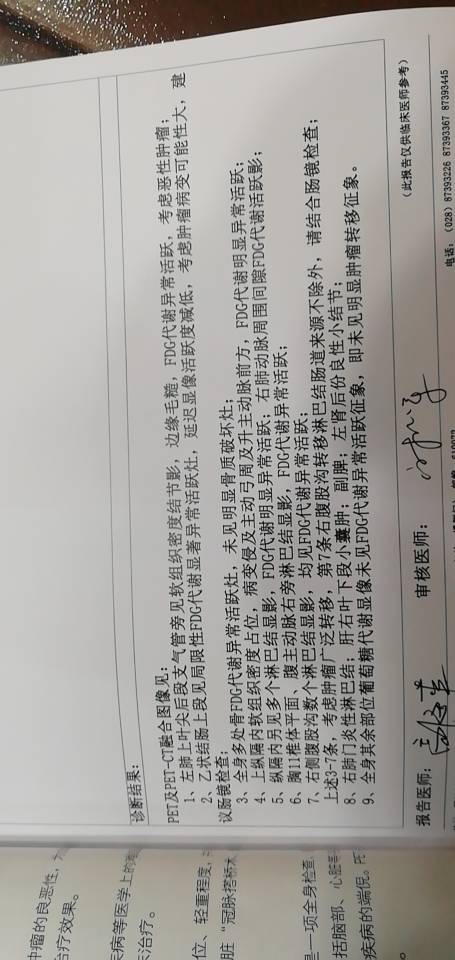 诊断结果：
PET及PET-CT融合图像见：
1、左肺上叶尖后段支气管旁见软组织密度结节影，边缘毛糙，FDG代谢异常活跃，考虑恶性肿瘤；
2、乙状结肠上段见局限性FDG代谢显著异常活跃灶，延迟显像活跃度减低，考虑肿瘤病变可能性大，建
议肠镜检查；
3、全身多处骨FDG代谢异常活跃灶，未见明显骨质破坏灶；
4、上纵隔内软组织密度占位，病变侵及主动弓周及升主动脉前方，FDG代谢明显异常活跃；
5、纵隔内另见多个淋巴结显影，FDG代谢明显异常活跃；右肺动脉周围间隙FDG代谢活跃影；
6、胸11椎体平面、腹主动脉右旁淋巴结显影，FDG代谢异常活跃；
7、右侧腹股沟数个淋巴结显影，均见FDG代谢异常活跃；
上述3-7条，考虑肿瘤广泛转移，第7条右腹股沟转移淋巴结肠道来源不除外，请结合肠镜检查；
8、右肺门炎性淋巴结；肝右叶下段小囊肿；副脾；左肾后份良性小结节；
9、全身其余部位葡萄糖代谢显像未见FDG代谢异常活跃征象，即未见明显肿瘤转移征象。
报告医师：
审核医师：
（此报告仅供临床医师参考）
电话：（028）87393226 87393367 87393445
肿瘤的良恶性，
治疗效果。
疾病等医学上的
床治疗。
位、轻重程度，
脏“冠脉搭桥术
是一项全身检查，
括脑部、心脏等
疾病的端倪。